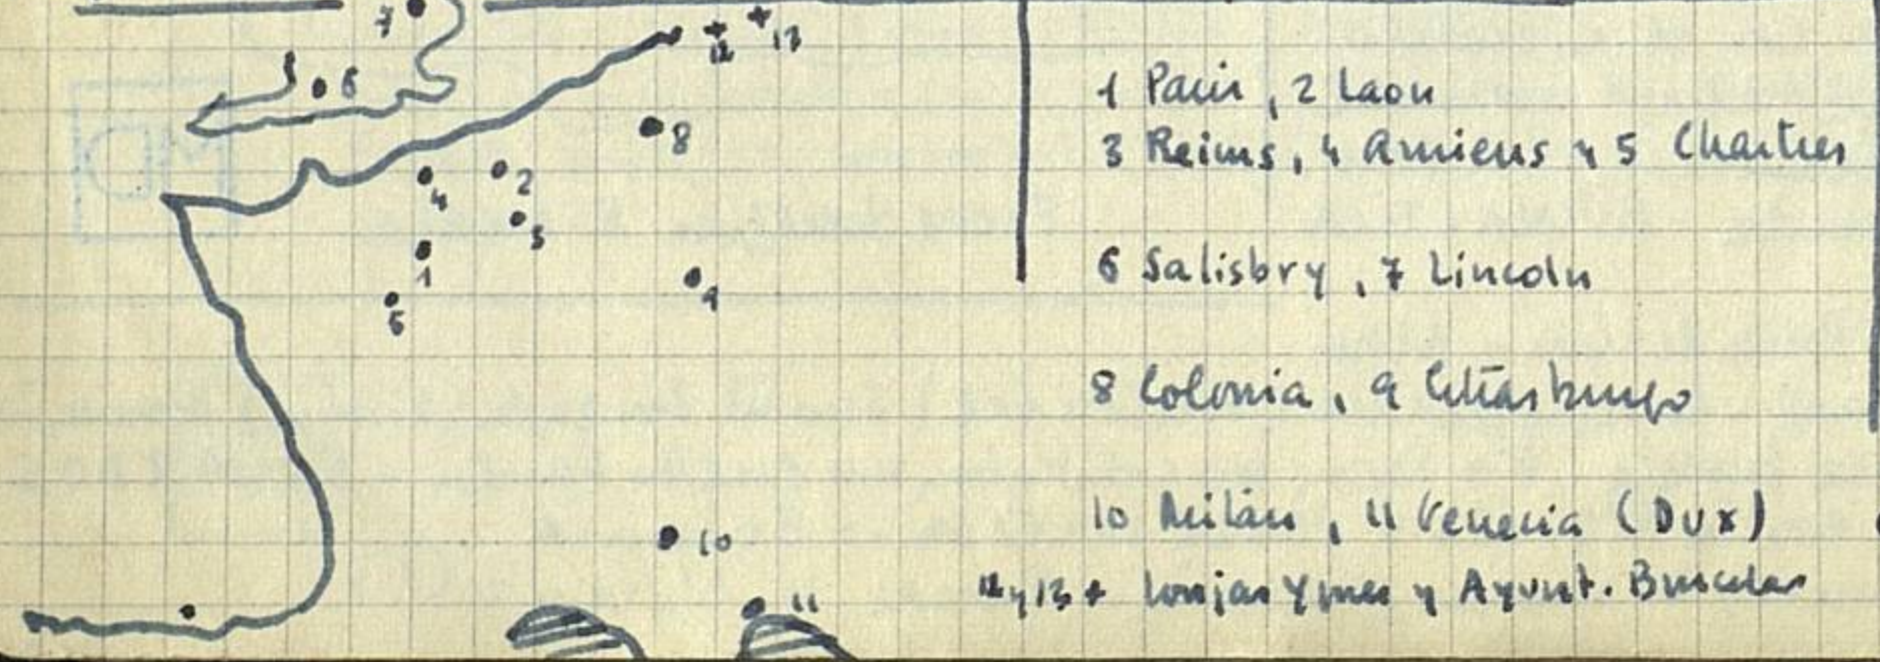 7
12 13
6
8
2
4
3
1
9
5
10
11
1 Paris, 2 Laon
3 Reims, 4 Amiens y 5 Chartres
6 Salisbry, 7 Lincoln
8 Colonia, 9 Estrasburgo
10 Milán, 11 Venecia (Dux)
12 y 13 + lonjas Ypres y Ayunt. Bruselas